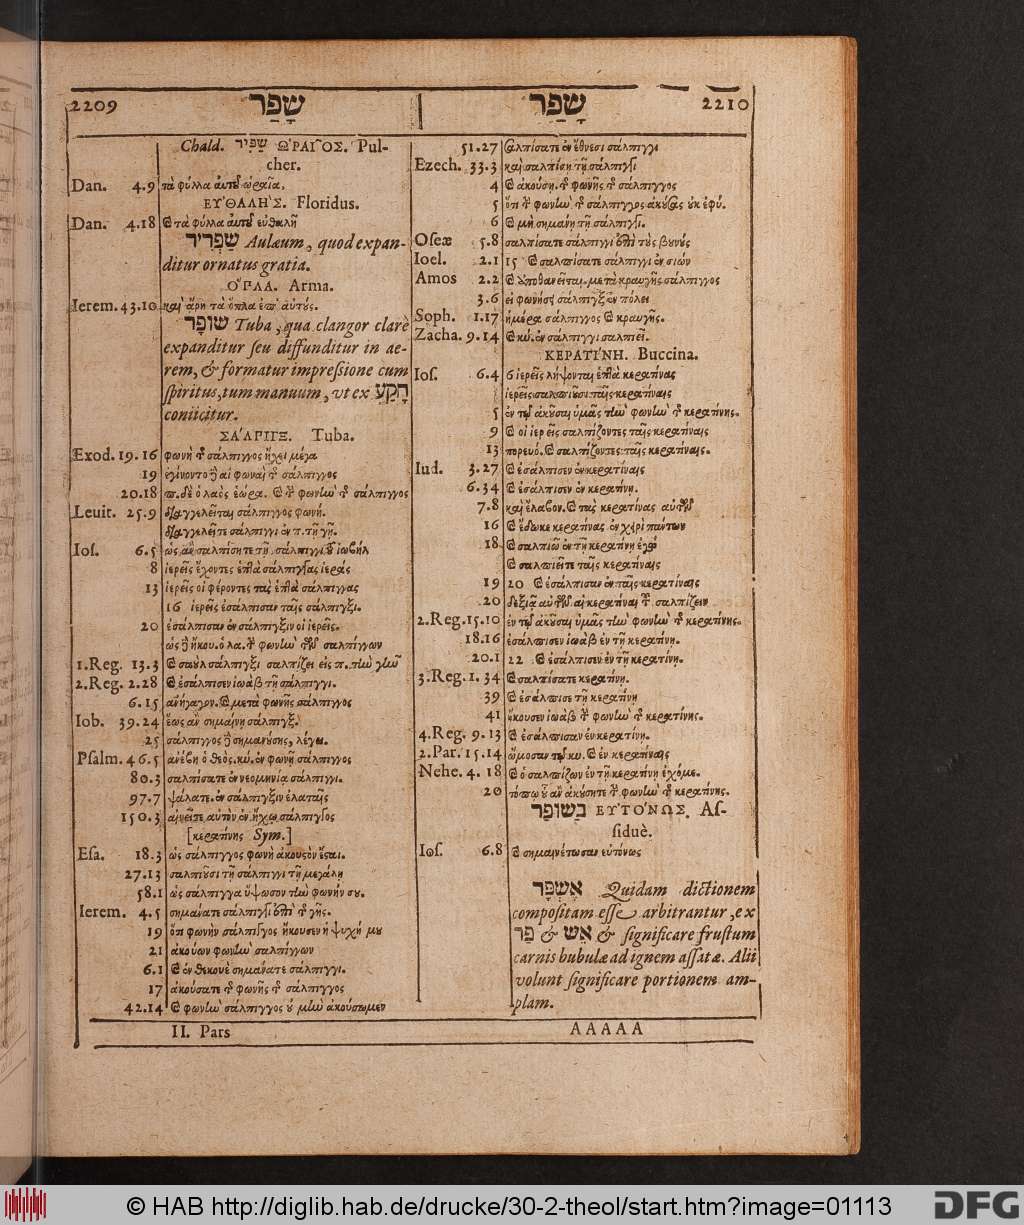 2209 שָׁפַר
שָׁפַר 2210
Chald. שַׁפִּיר ΩΡΑΙ͂ΟΣ. Pul-
cher.
Dan. 4.9 τὰ φύλλα αὐτοῦ ὡραῖα,
ΕΥ̓ΘΑΛΗ'Σ. Floridus.
Dan. 4.18 τὰ φύλλα αὐτοῦ εὐθαλῆ
שַׁפְרִיר Aulæum, quod expan-
ditur ornatus gratia.
ὍΠΛΑ. Arma.
Ierem. 43.10 καὶ ἄρῃ τὰ ὅπλα ἐπ' αὐτούς.
שׁוֹפָר Tuba, qua clangor clarè
expanditur seu diffunditur in ae-
rem, & formatur impressione cum
spiritus, tum manuum, ut ex תָּקַע
coniicitur.
ΣΑ'ΛΠΙΓΞ. Tuba.
Exod. 19.16 φωνὴ τῆς σάλπιγγος ἤχει μέγα
19 ἐγίνοντο δὲ αἱ φωναὶ τῆς σάλπιγγος
20.18 π. δὲ ὁ λαὸς ἑώρα. τὴν φωνὴν τῆς σάλπιγγος
Leuit. 25.9 διαγγελεῖται σάλπιγγος φωνῇ.
διαγγελεῖτε σάλπιγγι ἐν π. τῇ γῇ.
Ios. 6.5 ὡς ἂν σαλπίσητε τῇ σάλπιγγι τοῦ ἰωβήλ
8 ἱερεῖς ἔχοντες ἑπτὰ σάλπιγγας ἱεράς
13 ἱερεῖς οἱ φέροντες τὰς ἑπτὰ σάλπιγγας
16 ἱερεῖς ἐσάλπισαν ταῖς σάλπιγξι.
20 ἐσάλπισαν ἐν σάλπιγξιν οἱ ἱερεῖς.
ὡς δὲ ἤκου. ὁ λα. τὴν φωνὴν τῶν σαλπίγγων
1.Reg. 13.3 σαοὺλ σάλπιγξι σαλπίζει εἰς π. τὴν γῆν
2.Reg. 2.28 ἐσάλπισεν ἰωὰβ τῇ σάλπιγγι.
6.15 ἀνήγαγον. μετὰ φωνῆς σάλπιγγος
Iob. 39.24 ἕως ἂν σημαίνῃ σάλπιγξ.
25 σάλπιγγος δὲ σημαινούσης, λέγει.
Psalm. 46.5 ἀνέβη ὁ θεὸς. κύ. ἐν φωνῇ σάλπιγγος
80.3 σαλπίσατε ἐν νεομηνίᾳ σάλπιγγι.
97.7 ψάλατε. ἐν σάλπιγξιν ἐλαταῖς
150.3 αἰνεῖτε αὐτὸν ἐν ἤχῳ σάλπιγγος
[κερατίνης Sym.]
Esa. 18.3 ὡς σάλπιγγος φωνὴ ἀκουστὸν ἔσται.
27.13 σαλπιοῦσι τῇ σάλπιγγι τῇ μεγάλῃ
58.1 ὡς σάλπιγγα ὕψωσον τὴν φωνήν σου.
Ierem. 4.5 σημάνατε σάλπιγγι ἐπὶ τῆς γῆς.
19 ὅτι φωνὴν σάλπιγγος ἤκουσεν ἡ ψυχή μου
21 ἀκούων φωνὴν σαλπίγγων
6.1 ἐν θεκουὲ σημάνατε σάλπιγγι.
17 ἀκούσατε τῆς φωνῆς τῆς σάλπιγγος
42.14 φωνὴν σάλπιγγος οὐ μὴ ἀκούσωμεν
II. Pars
51.27 σαλπίσατε ἐν ἔθνεσι σάλπιγγι
Ezech. 33.3 καὶ σαλπίσῃ τῇ σάλπιγγι
4 ἀκούσῃ. τῆς φωνῆς τῆς σάλπιγγος
5 ὅτι τὴν φωνὴν τῆς σάλπιγγος ἀκούσας οὐκ ἐφύ.
6 μὴ σημάνῃ τῇ σάλπιγγι.
Oseæ 5.8 σαλπίσατε σάλπιγγι ἐπὶ τοὺς βουνούς
Ioel. 2.1 15 σαλπίσατε σάλπιγγι ἐν σιών
Amos 2.2 ἀποθανεῖται. μετὰ κραυγῆς σάλπιγγος
3.6 εἰ φωνήσει σάλπιγξ ἐν πόλει
Soph. 1.17 ἡμέρα σάλπιγγος κραυγῆς.
Zacha. 9.14 κύ. ἐν σάλπιγγι σαλπιεῖ.
ΚΕΡΑΤΙ'ΝΗ. Buccina.
Ios. 6.4 6 ἱερεῖς λήψονται ἑπτὰ κερατίνας
ἱερεῖς σαλπιοῦσι ταῖς κερατίναις
5 ἐν τῷ ἀκοῦσαι ὑμᾶς τὴν φωνὴν τῆς κερατίνης.
9 οἱ ἱερεῖς σαλπίζοντες ταῖς κερατίναις
13 πορευό. σαλπίζοντες ταῖς κερατίναις.
Iud. 3.27 ἐσάλπισεν ἐν κερατίναις
6.34 ἐσάλπισεν ἐν κερατίνῃ.
7.8 καὶ ἔλαβον. τὰς κερατίνας αὐτῶν
16 ἔδωκε κερατίνας ἐν χειρὶ πάντων
18 σαλπιῶ ἐν τῇ κερατίνῃ ἐγώ
σαλπιεῖτε ταῖς κερατίναις
19 20 ἐσάλπισαν ἐν ταῖς κερατίναις
20 δεξιᾷ αὐτῶν αἱ κερατίναι τοῦ σαλπίζειν
2.Reg. 15.10 ἐν τῷ ἀκοῦσαι ὑμᾶς τὴν φωνὴν τῆς κερατίνης.
18.16 ἐσάλπισεν ἰωὰβ ἐν τῇ κερατίνῃ.
20.1 22 ἐσάλπισεν ἐν τῇ κερατίνῃ.
3.Reg. 1.34 σαλπίσατε κερατίνῃ.
39 ἐσάλπισε τῇ κερατίνῃ
41 ἤκουσεν ἰωὰβ τὴν φωνὴν τῆς κερατίνης.
4.Reg. 9.13 ἐσάλπισαν ἐν κερατίνῃ.
2.Par. 15.14 ὤμοσαν τῷ κυ. ἐν κερατίναις
Nehe. 4.18 ὁ σαλπίζων ἐν τῇ κερατίνῃ ἐχόμε.
20 τόπῳ οὗ ἂν ἀκούσητε τὴν φωνὴν τῆς κερατίνης.
בַשּׁוֹפָר ΕΥ̓ΤΟ'ΝΩΣ. As-
siduè.
Ios. 6.8 σημαινέτωσαν εὐτόνως
אֶשְׁפָּר Quidam dictionem
compositam esse arbitrantur, ex
פַּר & אֵשׁ & significare frustum
carnis bubulæ ad ignem assatæ. Alii
volunt significare portionem am-
plam.
AAAAA
© HAB http://diglib.hab.de/drucke/30-2-theol/start.htm?image=01113
DFG